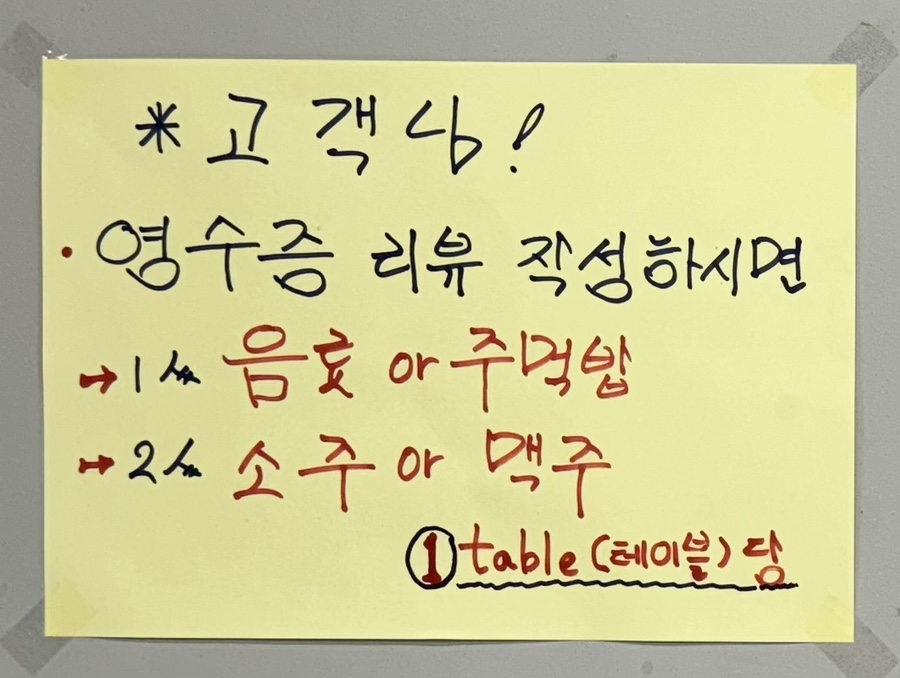 * 고객님!
• 영수증 리뷰 작성하시면
→ 1人 음료 or 주먹밥
→ 2人 소주 or 맥주
① table (테이블) 당